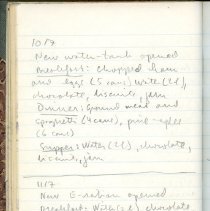 10/7
New water-tank opened
Breakfast: chopped ham
and eggs (5 cans)
chocolate, biscuits, jam
Dinner: Ground meat and
spaghetti (4 cans),
(6 cans)
Supper: chocolate,
biscuits, jam
11/7
New opened
Breakfast: chocolate